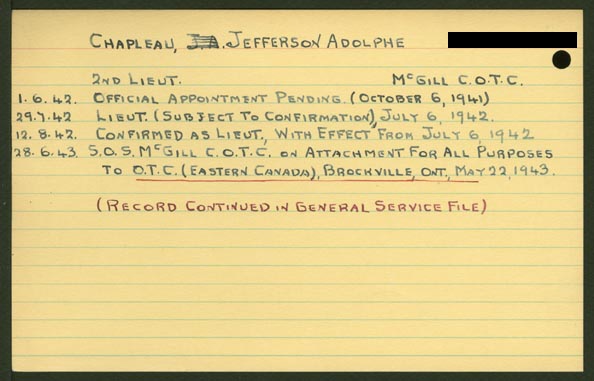 CHAPLEAU, J.A. JEFFERSON ADOLPHE
2ND LIEUT. McGILL C.O.T.C.
1.6.42. OFFICIAL APPOINTMENT PENDING. (OCTOBER 6, 1941)
29.7.42 LIEUT. (SUBJECT TO CONFIRMATION), JULY 6, 1942.
12.8.42. CONFIRMED AS LIEUT., WITH EFFECT FROM JULY 6, 1942
28.6.43. S.O.S. McGILL C.O.T.C. ON ATTACHMENT FOR ALL PURPOSES
TO O.T.C. (EASTERN CANADA), BROCKVILLE, ONT., MAY 22, 1943.
(RECORD CONTINUED IN GENERAL SERVICE FILE)